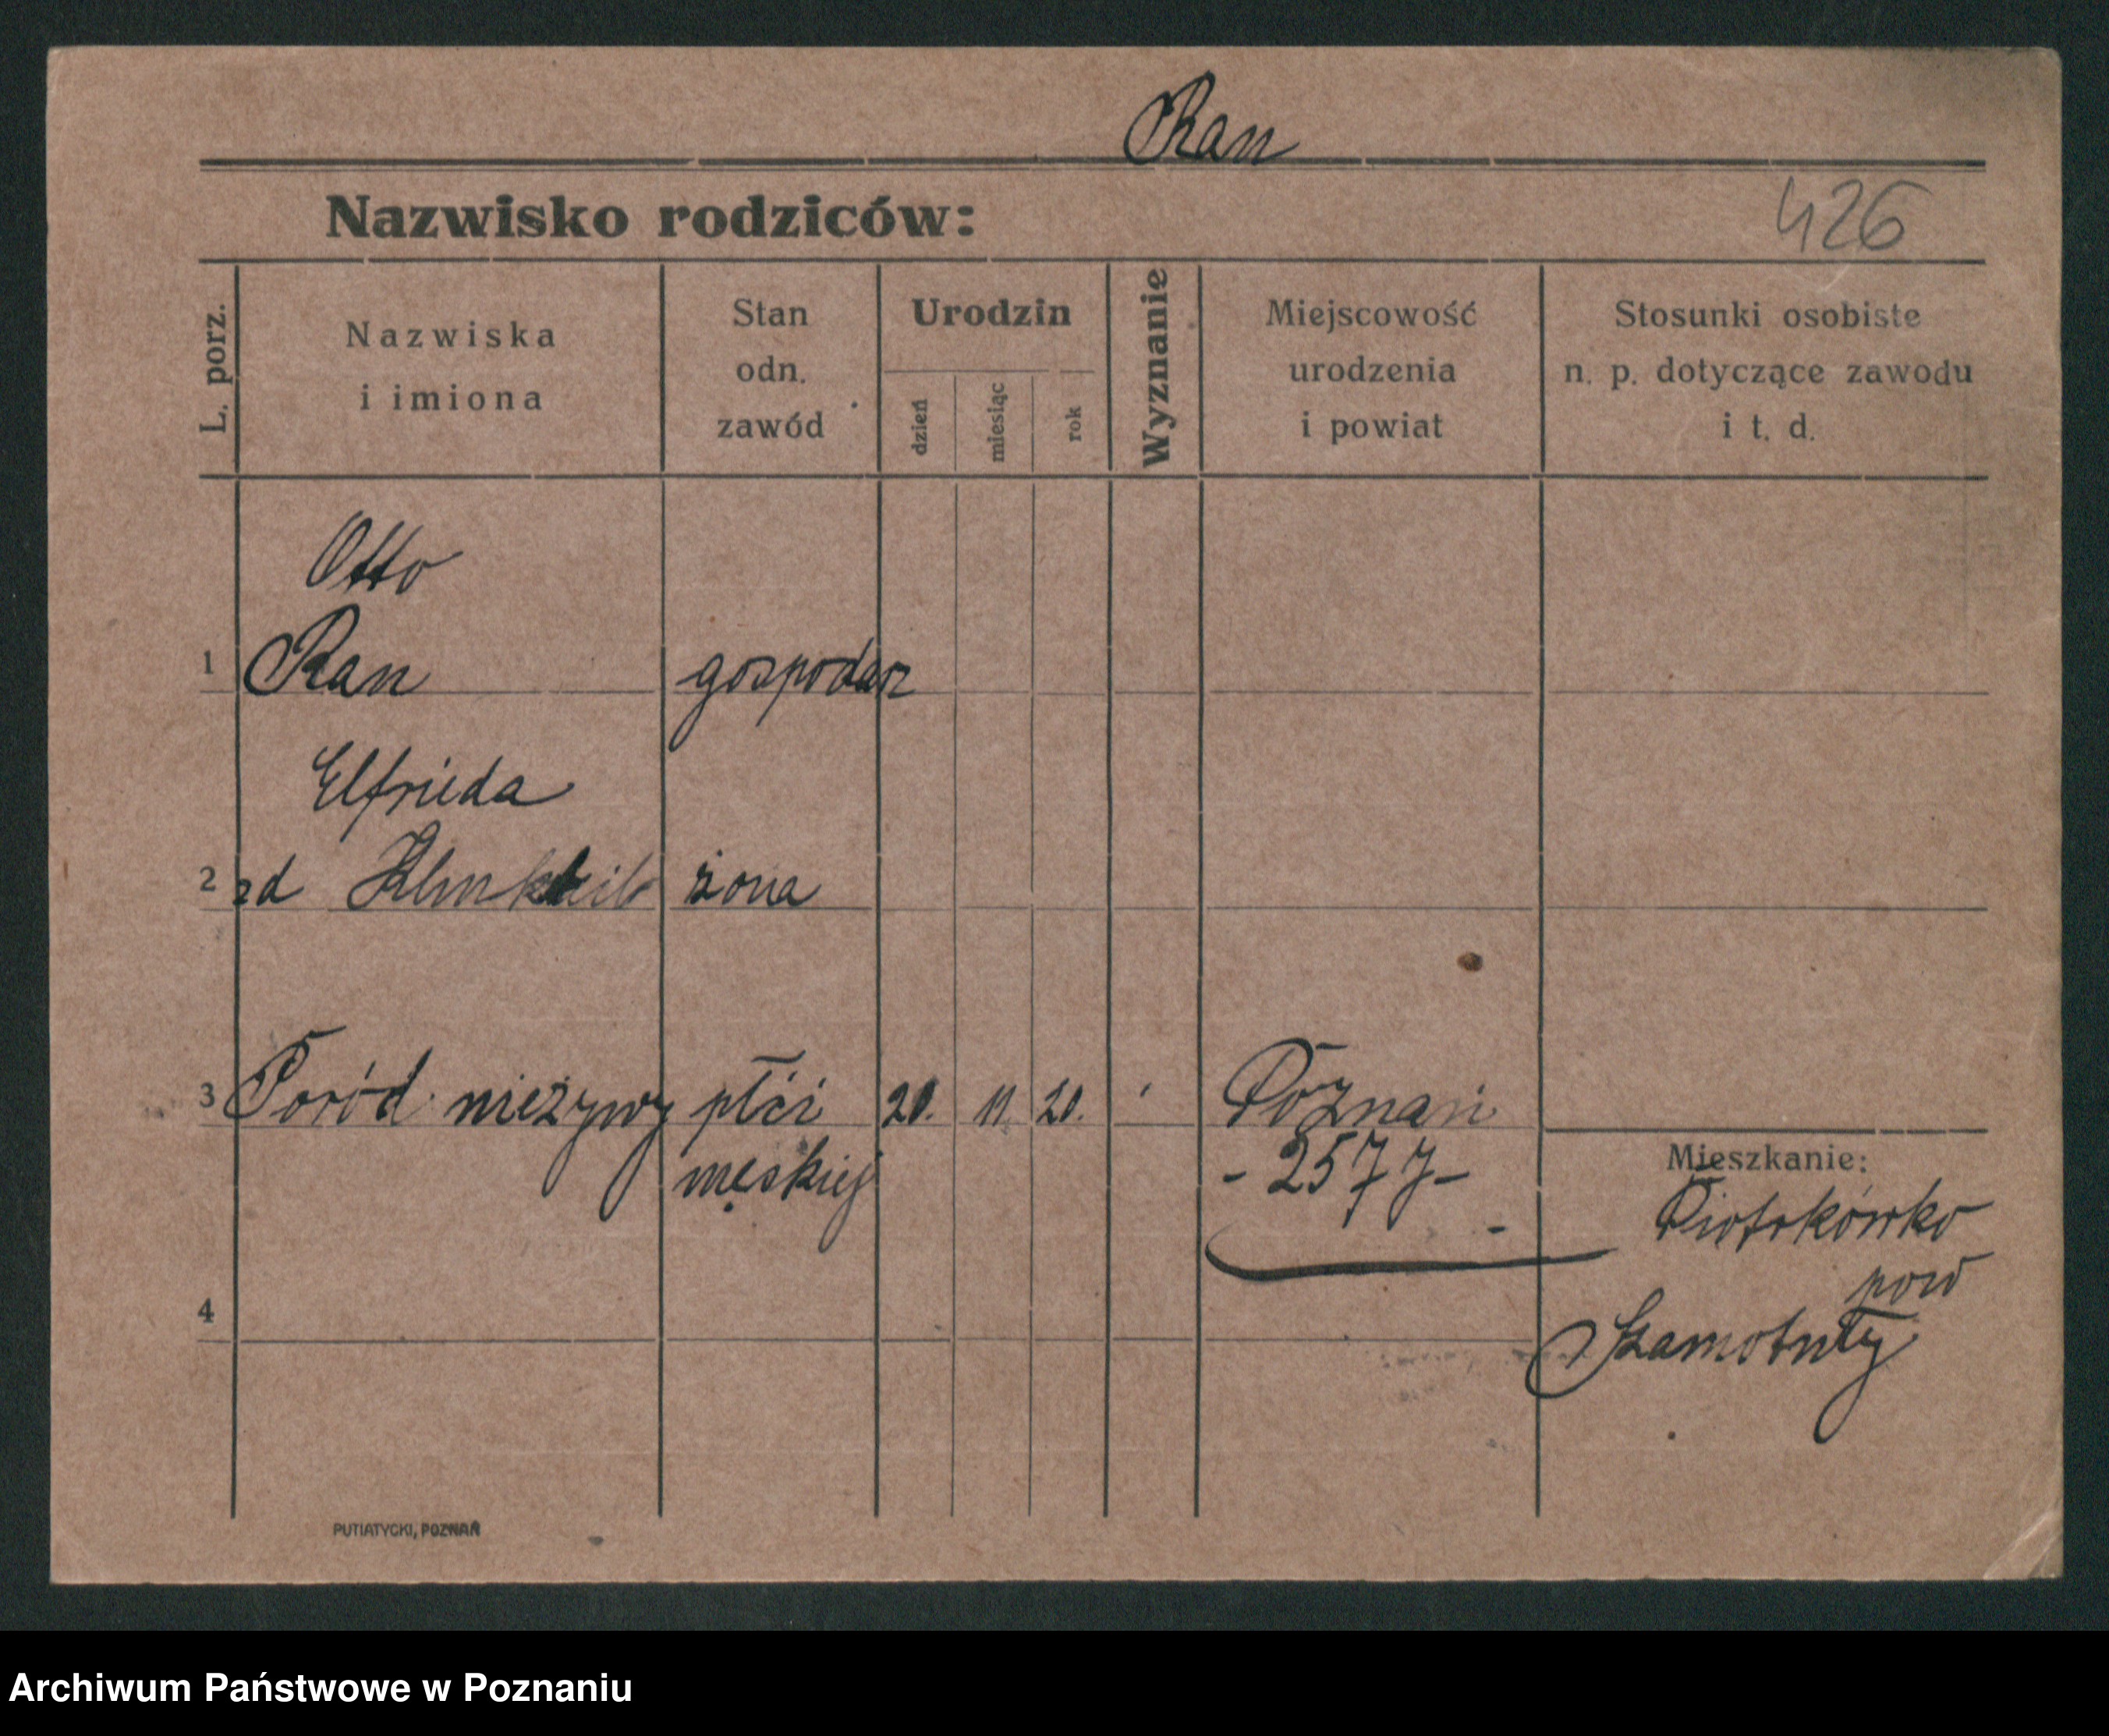 Ran
Nazwisko rodziców:
426
L. porz.
Nazwiska
i imiona
Stan
odn.
zawód
Urodzin
dzień
miesiąc
rok
Wyznanie
Miejscowość
urodzenia
i powiat
Stosunki osobiste
n. p. dotyczące zawodu
i t. d.
Otto
1 Ran gospodarz
Elfrieda
2 zd żona
3 Poród nieżywy płci 20. 11. 20. Poznań
męskiej - 2577 -
Mieszkanie:
Piotrkówko
pow
Szamotuły
4
PUTIATYCKI, POZNAŃ
Archiwum Państwowe w Poznaniu